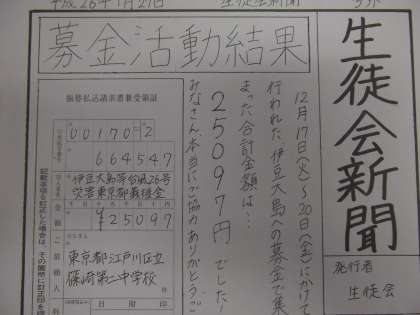 平成26年1月21日
生徒会新聞
生徒会新聞
発行者
生徒会
募金活動結果
12月17日(火)～20日(金)にかけて
行われた、伊豆大島への募金で集
まった合計金額は…
25097円でした!
みなさん、本当にご協力ありがとうござ
振替払込請求書兼受領証
00170 2
664547
伊豆大島等台風26号
災害東京都義援金
金額
¥25097
ご依頼人
東京都江戸川区立
篠崎第二中学校
日附印
記載事項を訂正した場合は、その箇所に訂正印を